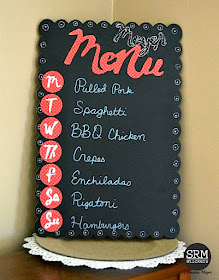 Meyer
Menu
M Pulled Pork
T Spaghetti
W BBQ Chicken
Th Crepes
F Enchiladas
Sa Rigatoni
Su Hamburgers
SRM
STICKERS